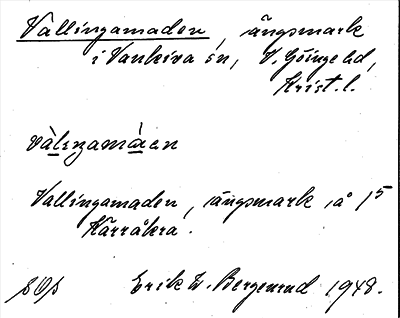 Vallingamaden, ängsmark
i Vankiva sn, V. Göinge hd,
Krist. l.
Vallingamaden, ängsmark å 1⁵
Kärråkra.
SOS Erik W. Bergenrud 1948.